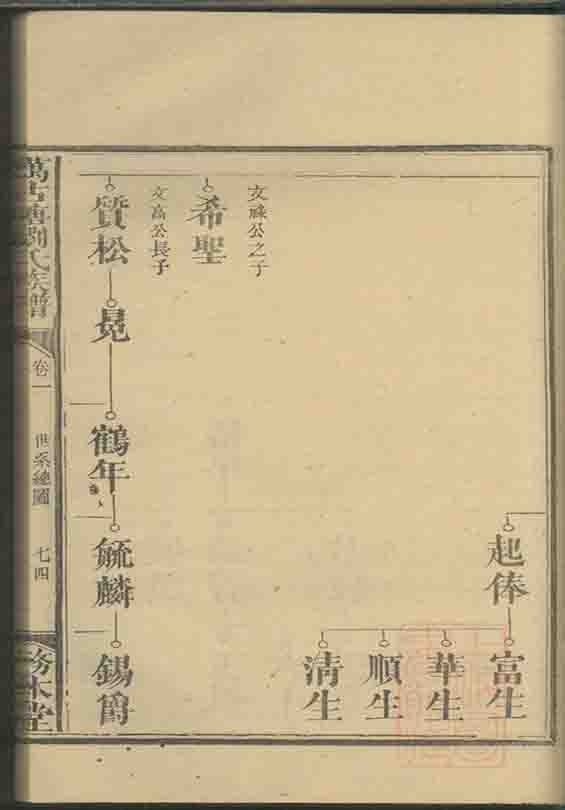 起俸
富生
華生
順生
清生
文祿公之子
希聖
文高公長子
質松
晃
鶴年
毓麟
錫爵
劉氏族譜
卷一
世系總圖
七四
務本堂